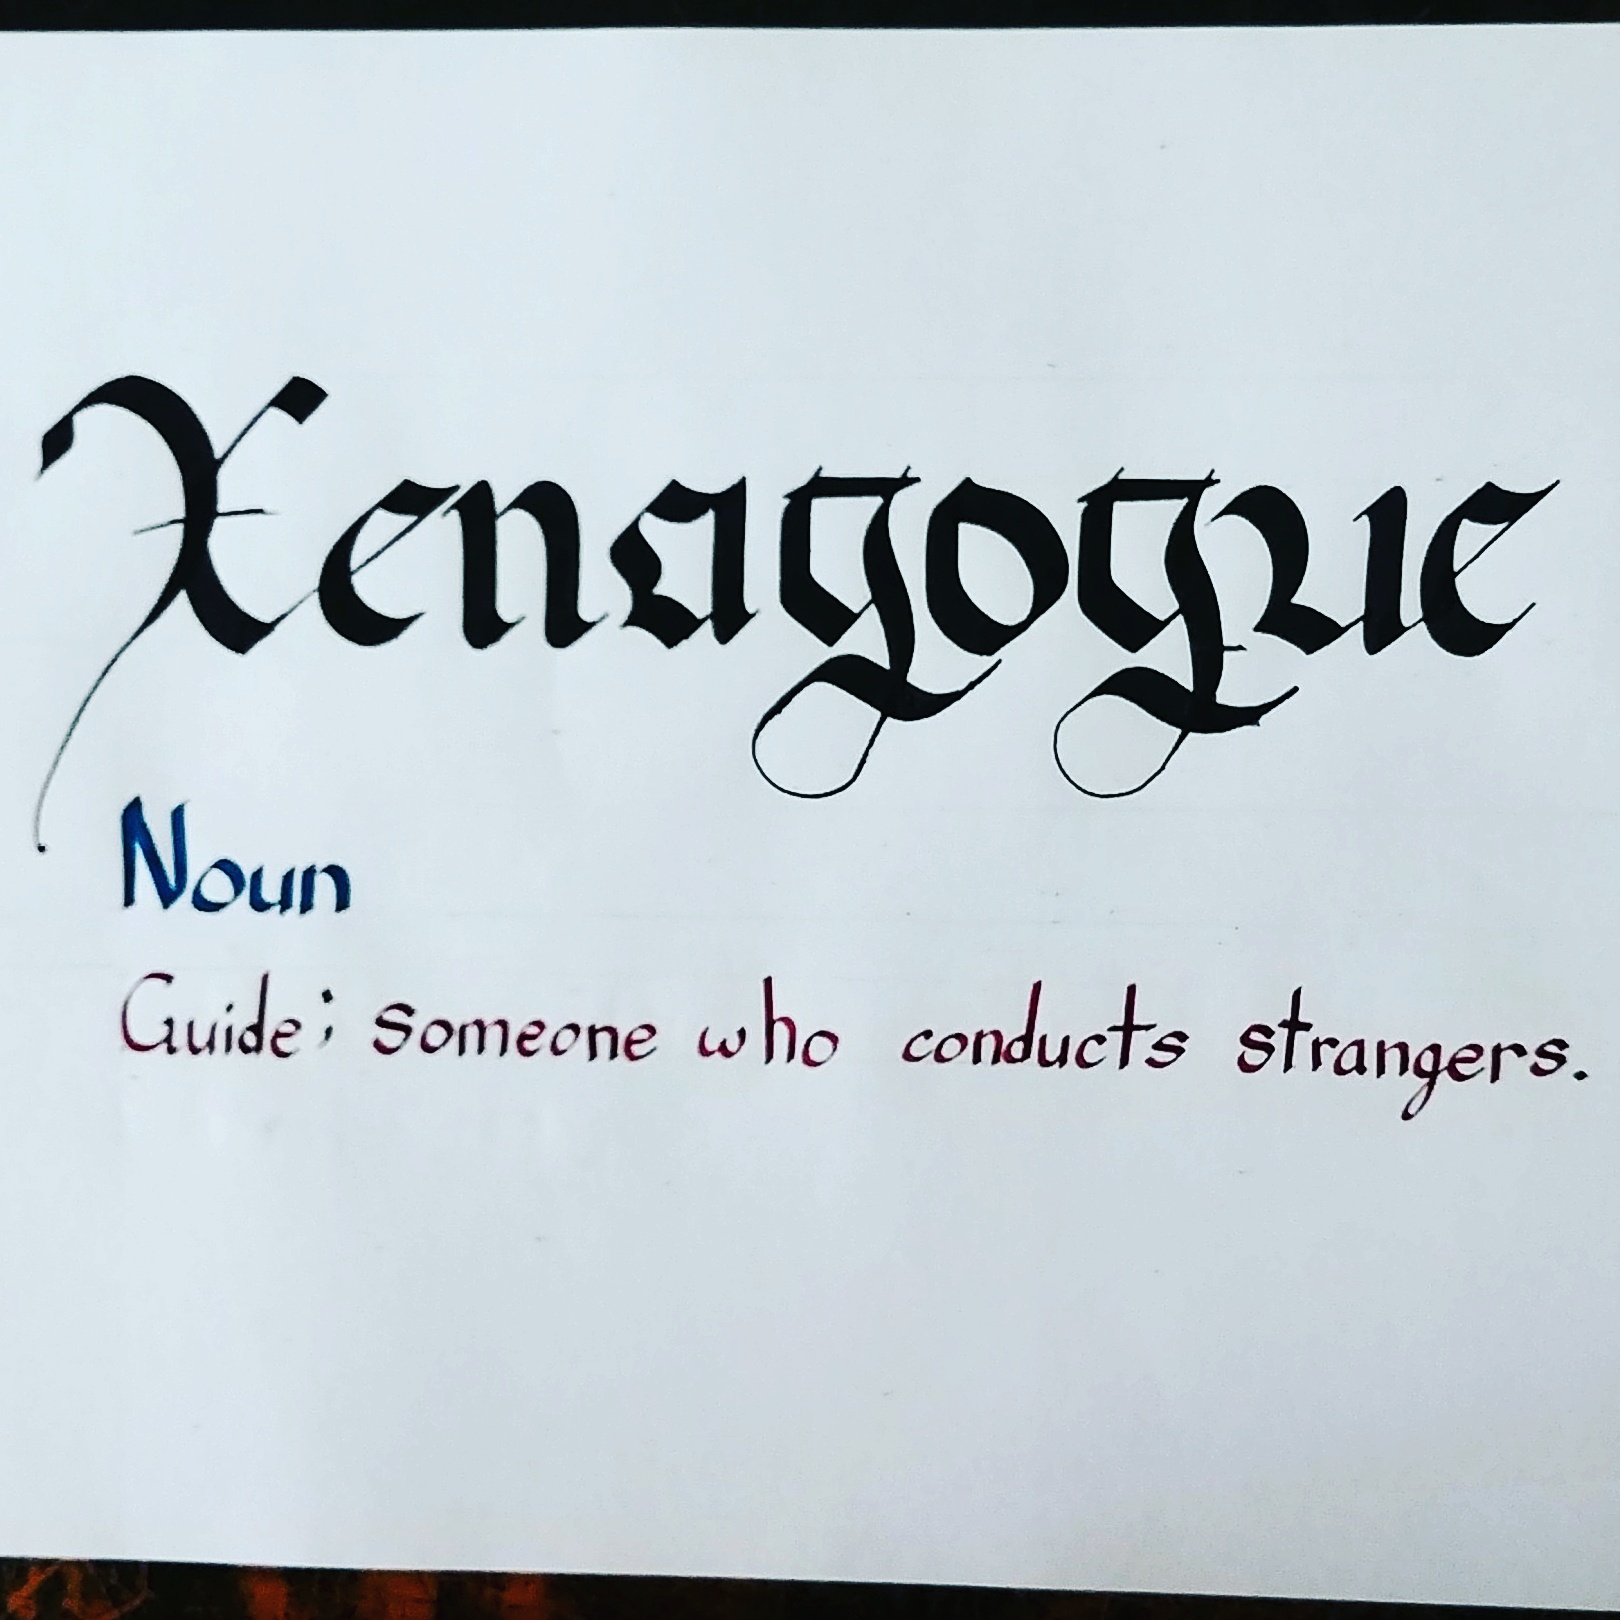 Xenagogue
Noun
Guide; someone who conducts strangers.